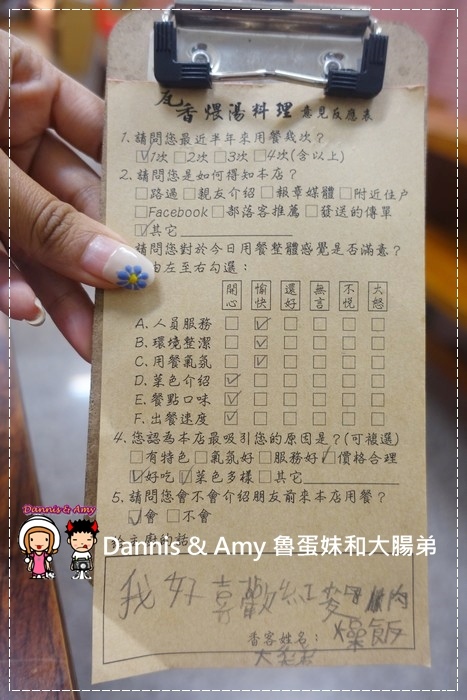 瓦香煨湯料理 意見反應表
1. 請問您最近半年來用餐幾次？
☑1次 ☐2次 ☐3次 ☐4次(含以上)
2. 請問您是如何得知本店？
☐路過 ☐親友介紹 ☐報章媒體 ☐附近住戶
☐Facebook ☐部落客推薦 ☐發送的傳單
☑其它
請問您對於今日用餐整體感覺是否滿意？
由左至右勾選：
開心 愉快 還好 無言 不悅 大怒
A. 人員服務 ☐ ☑ ☐ ☐ ☐ ☐
B. 環境整潔 ☐ ☑ ☐ ☐ ☐ ☐
C. 用餐氣氛 ☐ ☑ ☐ ☐ ☐ ☐
D. 菜色介紹 ☑ ☐ ☐ ☐ ☐ ☐
E. 餐點口味 ☑ ☐ ☐ ☐ ☐ ☐
F. 出餐速度 ☑ ☐ ☐ ☐ ☐ ☐
4. 您認為本店最吸引您的原因是？(可複選)
☐有特色 ☐氣氛好 ☐服務好 ☑價格合理
☑好吃 ☑菜色多樣 ☐其它
5. 請問您會不會介紹朋友前來本店用餐？
☑會 ☐不會
Dannis & Amy
Dannis & Amy 魯蛋妹和大腸弟
我好喜歡紅麴
燥飯
香客姓名：